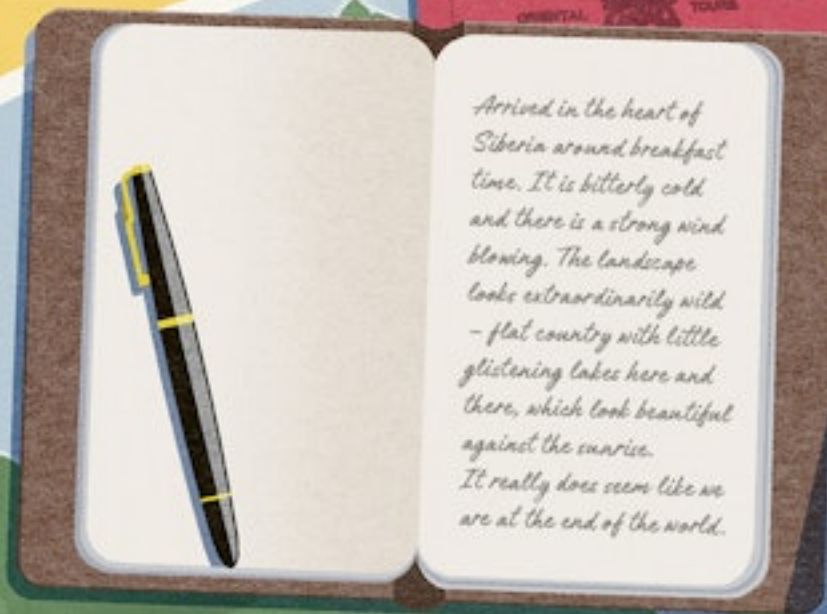 ORIENTAL TOURS
Arrived in the heart of
Siberia around breakfast
time. It is bitterly cold
and there is a strong wind
blowing. The landscape
looks extraordinarily wild
– flat country with little
glistening lakes here and
there, which look beautiful
against the sunrise.
It really does seem like we
are at the end of the world.